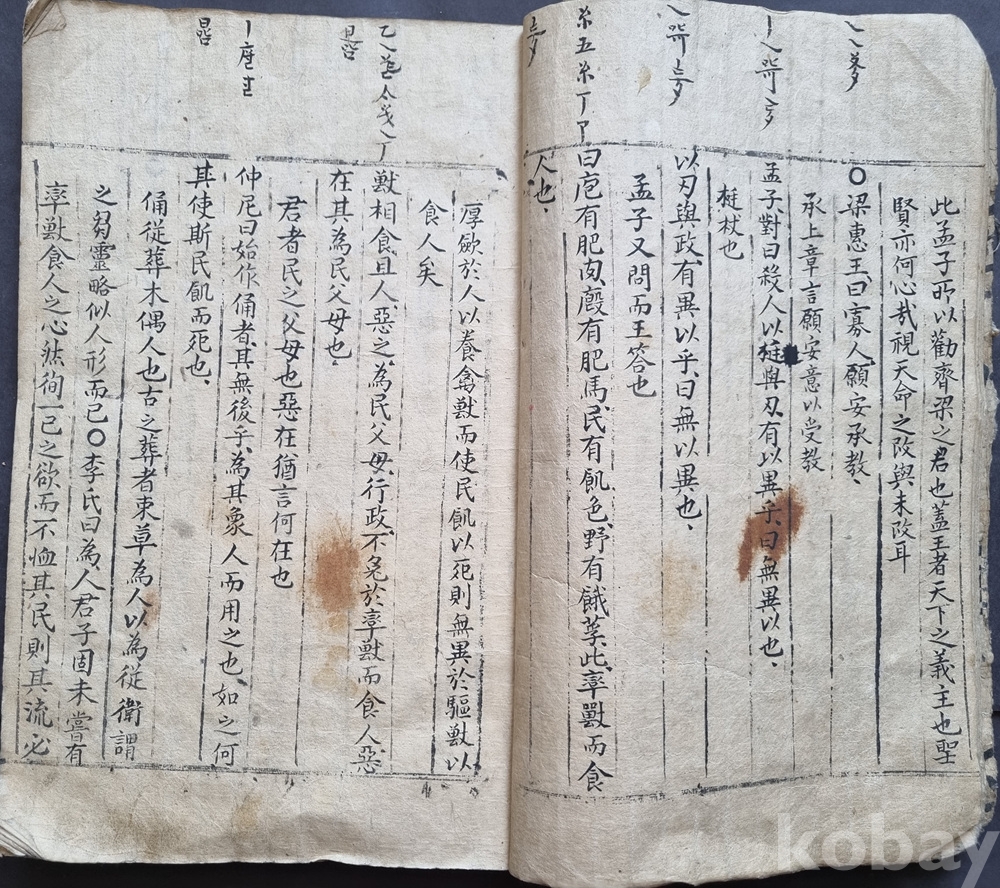 此孟子所以勸齊梁之君也蓋王者天下之義主也聖
賢亦何心哉視天命之改與未改耳
○梁惠王、曰寡人、願安承教、
承上章言願安意以受教
孟子、對曰殺人以梃與刃、有以異乎、曰無異以也、
梃杖也
以刃與政、有異以乎、曰無以異也、
孟子又問而王答也
曰庖有肥肉、廏有肥馬、民有飢色、野有餓莩、此、率獸而食
人也、
厚歛於人以養禽獸而使民飢以死則無異於驅獸以
食人矣
獸相食、且人、惡之、為民父母、行政、不免於率獸而食人、惡
在其為民父母也
君者民之父母也惡在猶言何在也
仲尼曰始作俑者、其無後乎、為其象人而用之也、如之何
其使斯民飢而死也、
俑從葬木偶人也古之葬者束草為人以為從衛謂
之芻靈略似人形而已○李氏曰為人君子固未嘗有
率獸食人之心然徇一己之欲而不恤其民則其流必
kobay